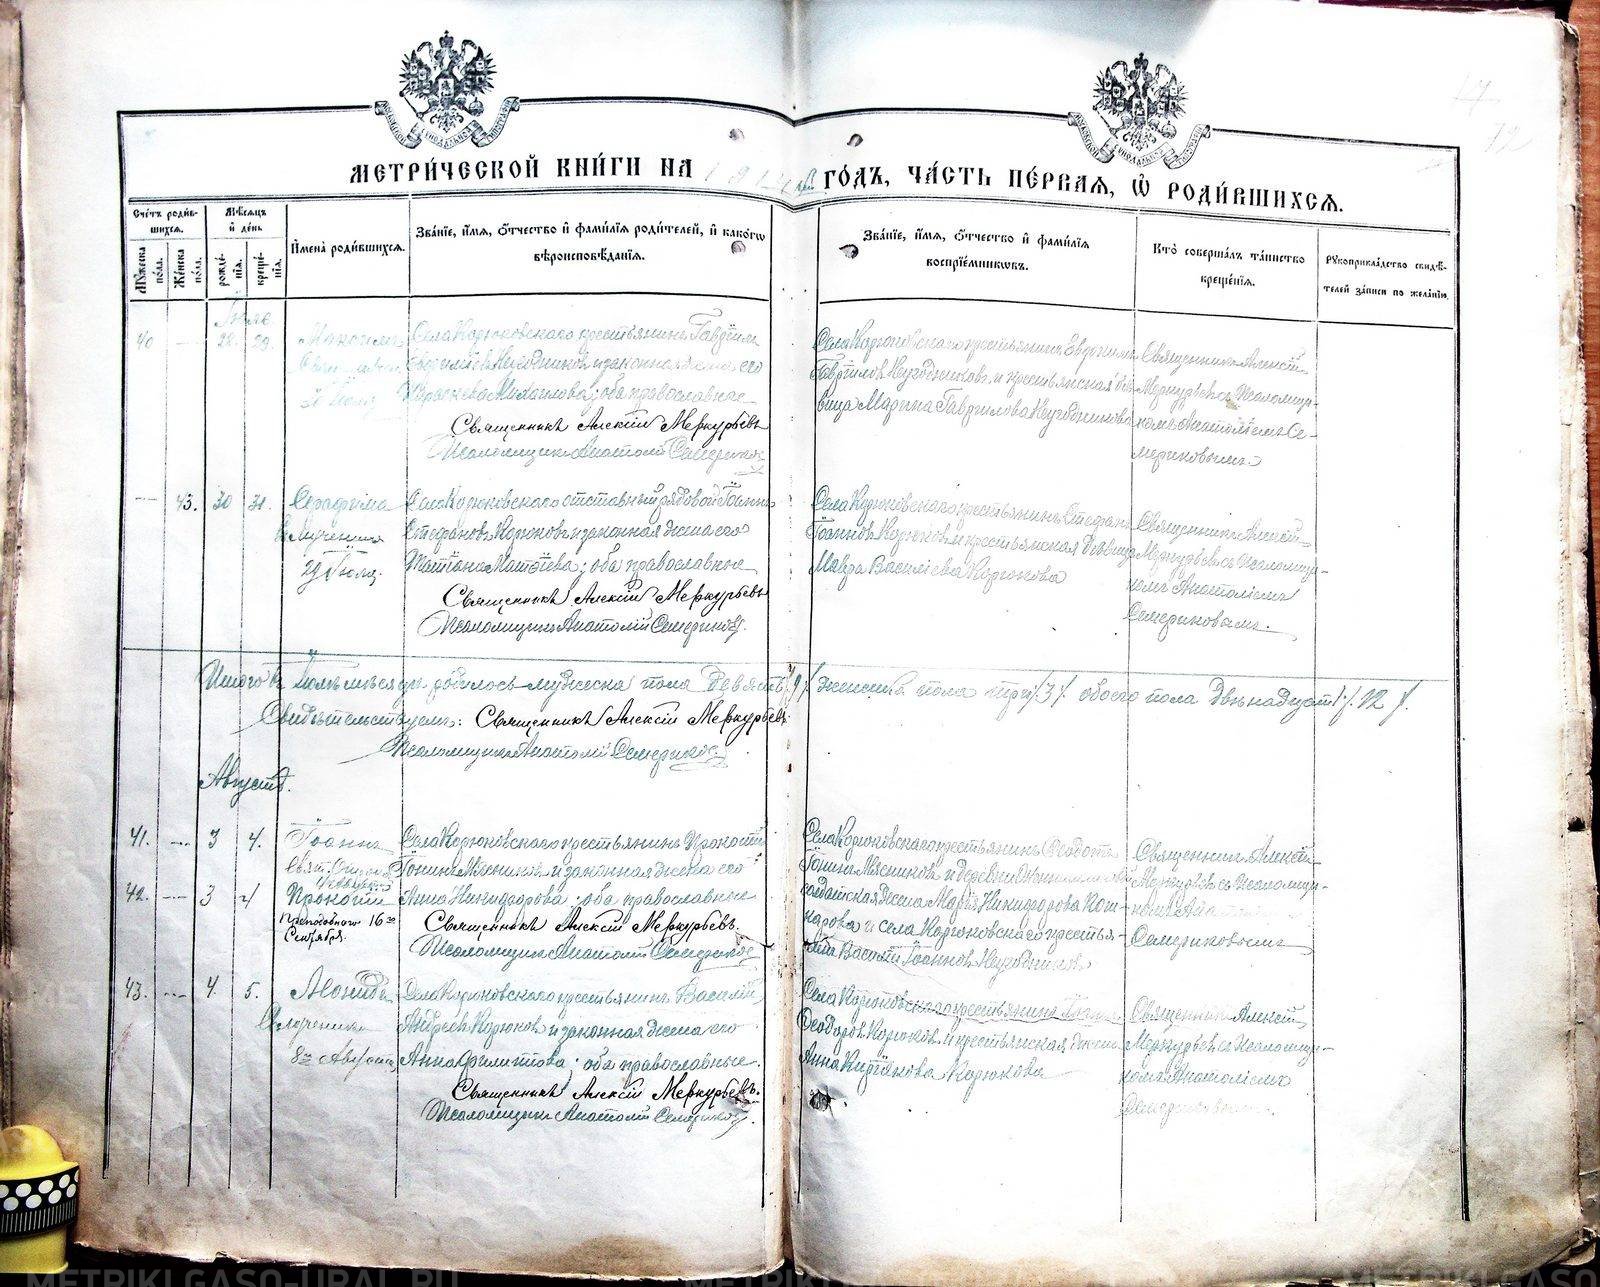 МЕТРИ́ЧЕСКОЙ КНИ́ГИ НА 1914 ГО́ДЪ, ЧА́СТЬ ПЕ́РВАЯ, Ѡ҆ РОДИ́ВШИХСЯ.
Сче́тъ роди́вшихся.
Му́жеска по́ла.
Же́нска по́ла.
Мѣ́сяцъ и҆ де́нь
рожде́нїя.
креще́нїя.
И҆мена̀ роди́вшихся.
Зва́нїе, и҆́мя, ѻ҆́тчество и҆ фами́лїя роди́телей, и҆ како́гѡ вѣроисповѣ́данїя.
Зва́нїе, и҆́мя, ѻ҆́тчество и҆ фами́лїя воспрїе́мникѡвъ.
Кто̀ соверша́лъ та́инство креще́нїя.
Рукоприкла́дство свидѣ́телей за́писи по жела́нїю.
72
40 — 28. 29.
Села Корюковскаго крестьянинъ Гавріилъ
Негодниковъ и законная жена его
Параскева Михаилова; оба православные
Священникъ Алексій Меркурьевъ
Псаломщикъ Анатолій Семериковъ
Села Корюковскаго крестьянинъ
Гавріиловъ Негодниковъ и крестьянская дѣ-
вица Марина Гавриілова Негодникова
Священникъ Алексій
Меркурьевъ съ псаломщи-
комъ Анатоліемъ Се-
мериковымъ
— 43. 30 31. Серафима
мученицы
29 Іюля.
Села Корюковскаго отставный рядовой Іоаннъ
Стефановъ Корюковъ и законная жена его
Татіана Матѳіева; оба православные
Священникъ Алексій Меркурьевъ
Псаломщикъ Анатолій Семериковъ.
Села Корюковскаго крестьянинъ Стефанъ
Іоанновъ Корюковъ и крестьянская дѣвица
Мавра Василіева Корюкова
Священникъ Алексій
Меркурьевъ съ псаломщи-
комъ Анатоліемъ
Семериковымъ.
Итого въ Іюлѣ мѣсяцѣ родилось мужеска пола девять /9/ женска пола три /3/ обоего пола двѣнадцать /12/.
Свидѣтельствуемъ: Священникъ Алексій Меркурьевъ
Псаломщикъ Анатолій Семериковъ
Августъ.
41. — 3 4. Іоаннъ
42. — 3 4 Прокопій
Преподобнаго 16го
Сентября.
Села Корюковскаго крестьянинъ Прокопій
Іоанновъ Мясниковъ и законная жена его
Анна Никифорова; оба православные
Священникъ Алексій Меркурьевъ.
Псаломщикъ Анатолій Семериковъ
Села Корюковскаго крестьянинъ Ѳеодотъ
Мясниковъ и деревни
солдатская жена Марія Никифорова
и села Корюковскаго крестья-
нинъ Василій Іоанновъ Негодниковъ
Священникъ Алексій
Меркурьевъ съ псаломщи-
комъ
Семериковымъ
43. — 4. 5. Леонидъ
мученика
8го Августа,
Села Корюковскаго крестьянинъ Василій
Андреевъ Корюковъ и законная жена его
Анна Филиппова; оба православные.
Священникъ Алексій Меркурьевъ.
Псаломщикъ Анатолій Семериковъ.
Села Корюковскаго крестьянинъ
Ѳеодоровъ Корюковъ и крестьянская
Анна Корюкова
Священникъ Алексій
Меркурьевъ съ псаломщи-
комъ Анатоліемъ
Семериковымъ.
METRIKI.GASO-URAL.RU